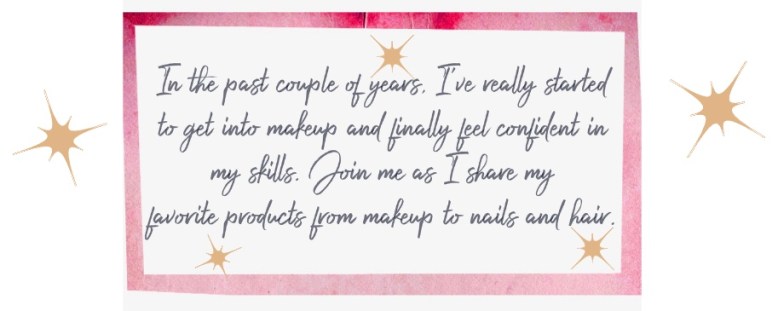 In the past couple of years, I've really started
to get into makeup and finally feel confident in
my skills. Join me as I share my
favorite products from makeup to nails and hair.